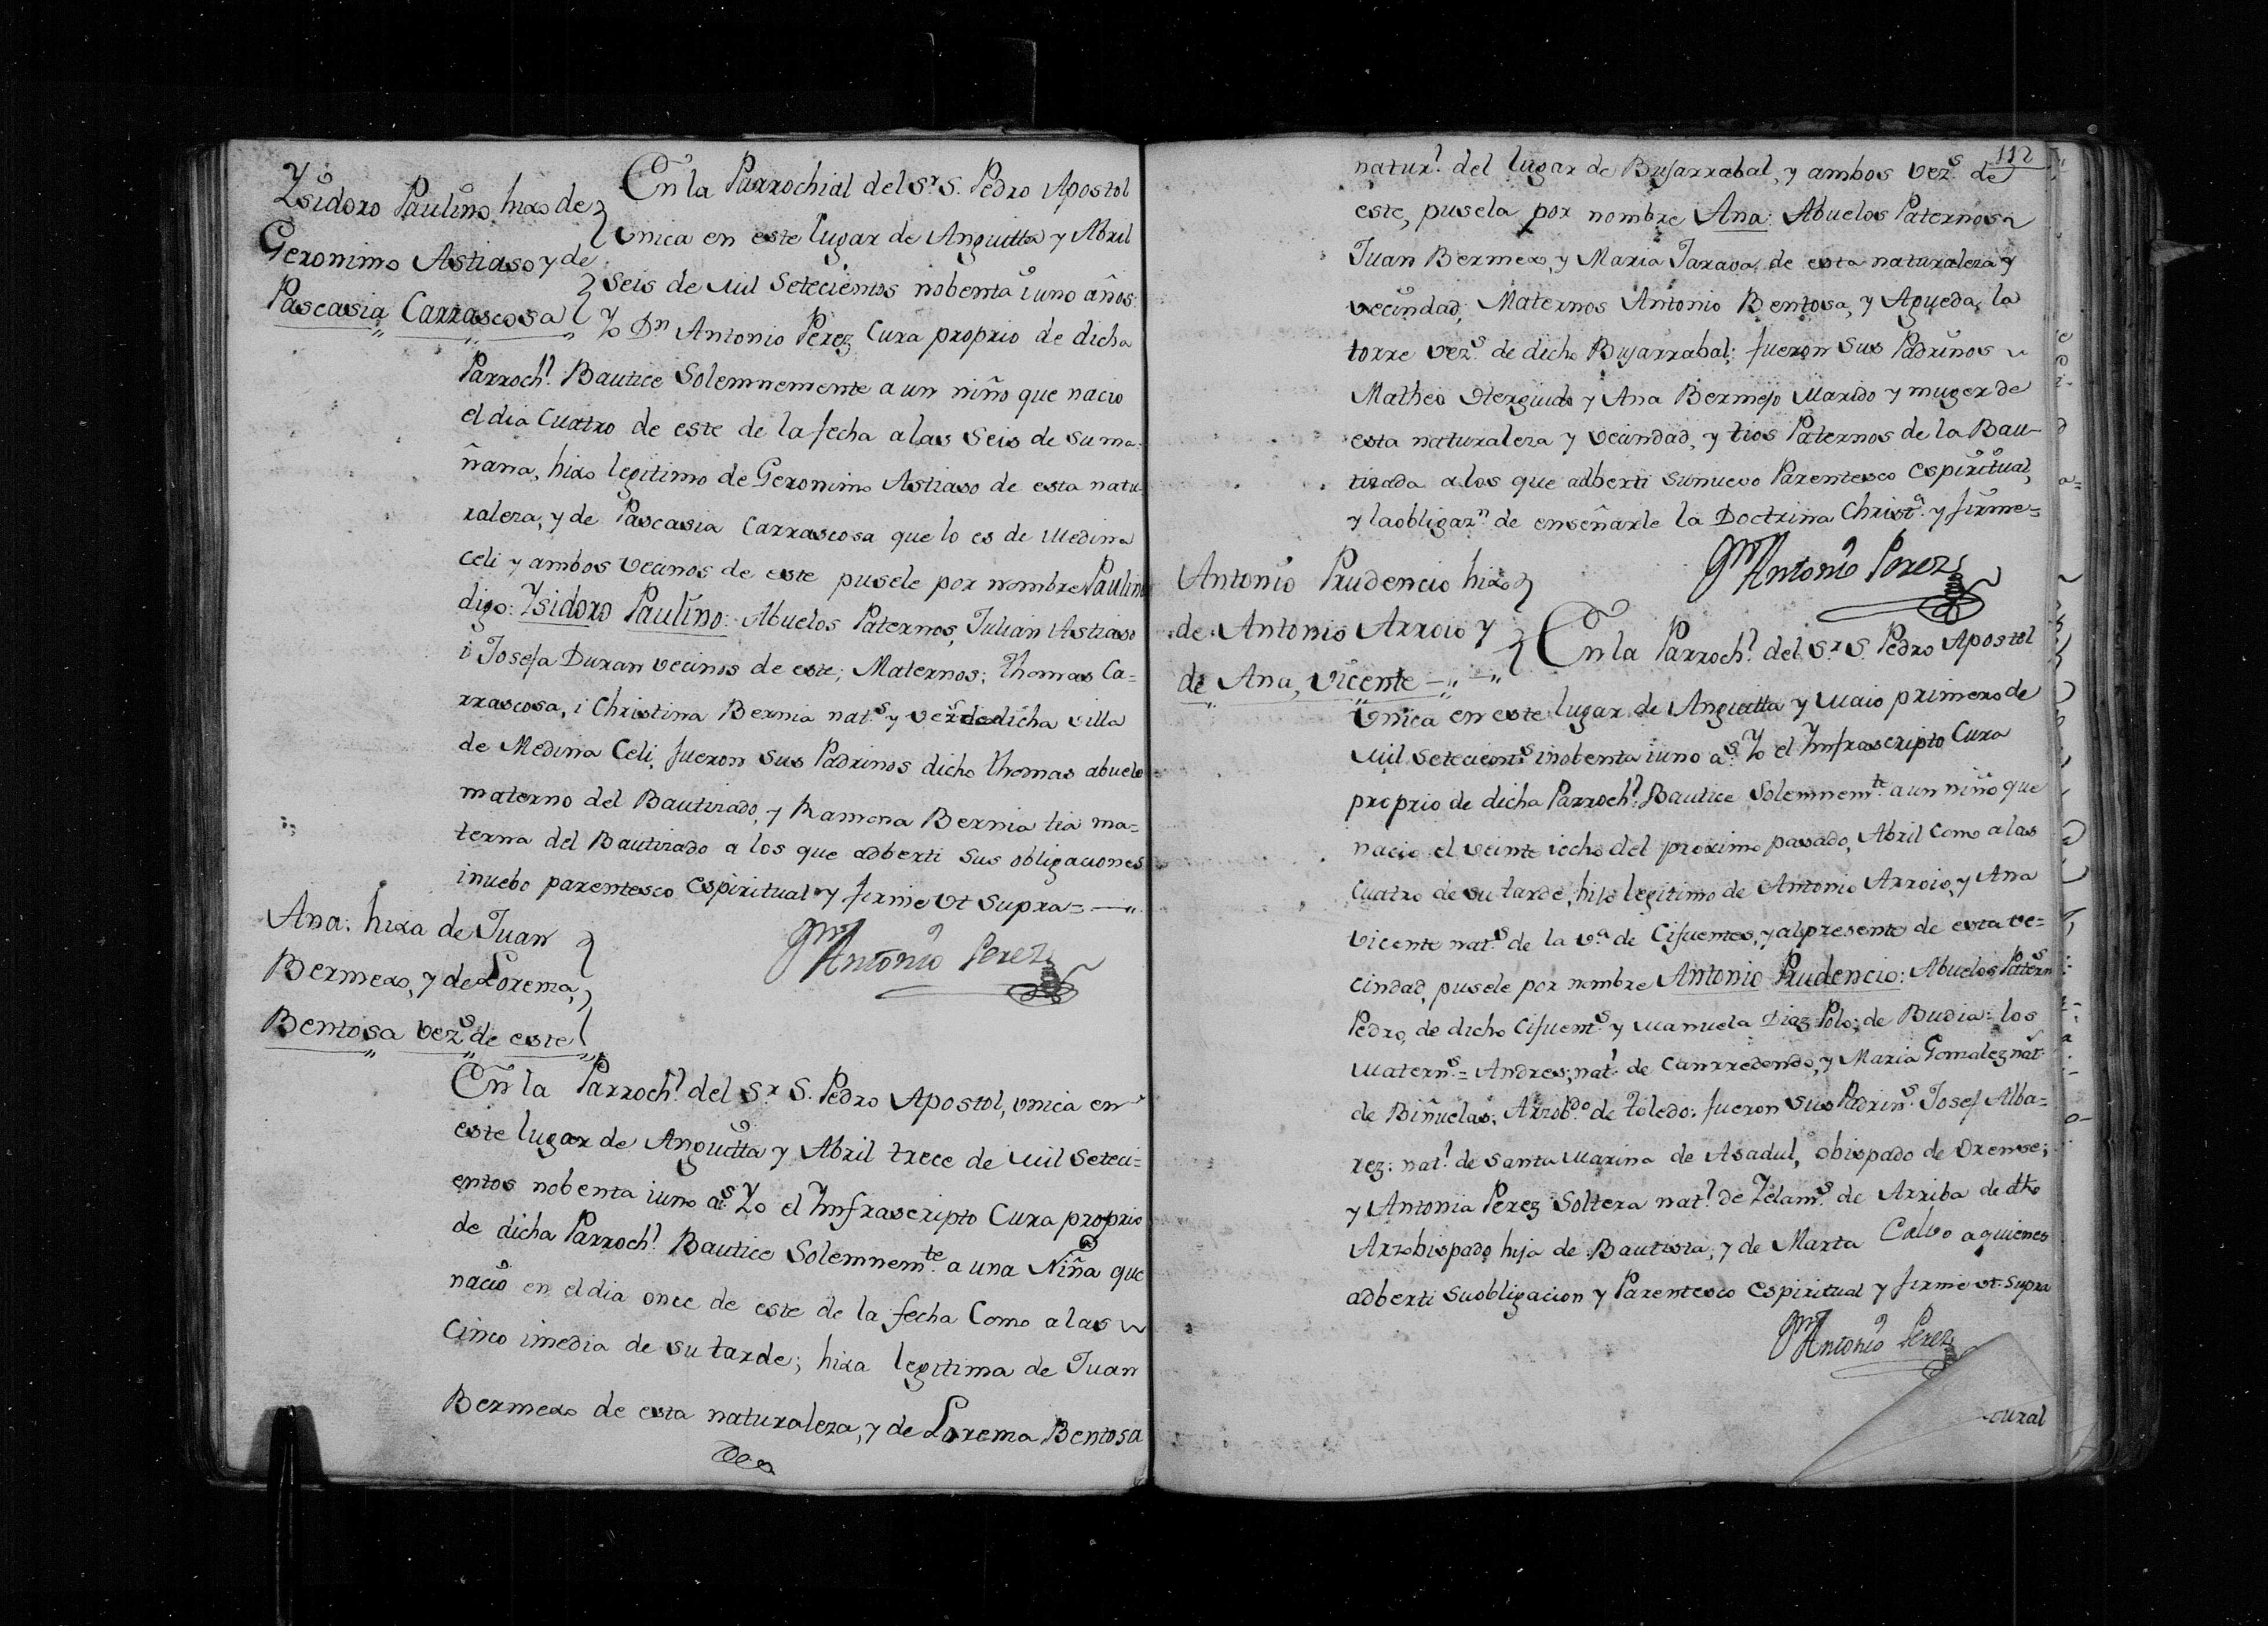 Ysidoro Paulino hixo de
Geronimo Astiaso y de
Pascasia Carrascosa
En la Parrochial del Sr. S. Pedro Apostol
Vnica en este Lugar de Anguitta y Abril
seis de Mil Setecientos nobenta i uno años:
Yo Dn. Antonio Perez Cura proprio de dicha
Parrochl. Bautice Solemnemente a un niño que nacio
el dia Cuatro de este de la fecha a las Seis de su ma-
ñana, hixo legitimo de Geronimo Astiaso de esta natu-
raleza, y de Pascasia Carrascosa que lo es de Medina
Celi y ambos vecinos de este pusele por nombre Paulino
digo: Ysidoro Paulino: Abuelos Paternos, Julian Astiaso
i Josefa Duran vecinos de este; Maternos: Thomas Ca=
rrascosa, i Christina Bernia nats. y vezs de dicha villa
de Medina Celi, fueron Sus Padrinos dicho Thomas abuelo
materno del Bautizado, y Ramona Bernia tia ma=
terna del Bautizado a los que adberti Sus obligaciones
i nuebo parentesco espiritual y firme Vt Supra=
Dn Antonio Perez
Ana: hixa de Juan
Bermexo, y de Lorenza,
Bentosa vezs. de este
En la Parrochl. del Sr. S. Pedro Apostol, vnica en
este lugar de Anguitta y Abril trece de Mil Seteci-
entos nobenta i uno as. Yo el Ynfrascripto Cura proprio
de dicha Parrochl. Bautice Solemnemte. a una Niña que
nacio en el dia once de este de la fecha Como a las
Cinco i media de su tarde; hixa legitima de Juan
Bermexo de esta naturaleza, y de Lorenza Bentosa
112
naturl. del lugar de Bujarrabal, y ambos vezs. de
este, pusela por nombre Ana: Abuelos Paternos
Juan Bermexo, y Maria Tarava de esta naturaleza y
vecindad; Maternos Antonio Bentosa, y Agueda, la
torre vezs. de dicho Bujarrabal: fueron Sus Padrinos
Matheo Herguido y Ana Bermejo Marido y muger de
esta naturaleza y vecindad, y tios Paternos de la Bau-
tizada a los que adberti su nuevo Parentesco espiritual,
y la obligazn. de enseñarle la Doctrina Christa. y firme=
Dn Antonio Perez
Antonio Prudencio hixo
de Antonio Arroio y
de Ana, Vicente
En la Parrochl. del Sr. S. Pedro Apostol
Vnica en este lugar de Anguitta y Maio primero de
Mil Setecients. i nobenta i uno as. Yo el Ynfrascripto Cura
proprio de dicha Parrochl. Bautice Solemnemte. a un niño que
nacio el veinte i ocho del proximo pasado, Abril Como a las
Cuatro de su tarde, hijo legitimo de Antonio Arroio, y Ana
Vicente nats. de la va. de Cifuentes, y al presente de esta ve=
cindad, pusele por nombre Antonio Prudencio: Abuelos Paterns
Pedro, de dicho Cifuents. y Manuela Diaz Polo; de Budia: los
Materns.= Andres; natl. de Canrredondo, y Maria Gonzalez nat.
de Biñuelas, Arzobdo. de Toledo: fueron Sus Padrins. Josef Alba=
rez: natl. de Santa Marina de Asadul, obispado de Orense;
y Antonia Perez Soltera natl. de Zelams. de Arriba de dho
Arzobispado hija de Bautista, y de Marta Calvo a quienes
adberti su obligacion y Parentesco Espiritual y firme vt. Supra
Dn Antonio Perez
tural